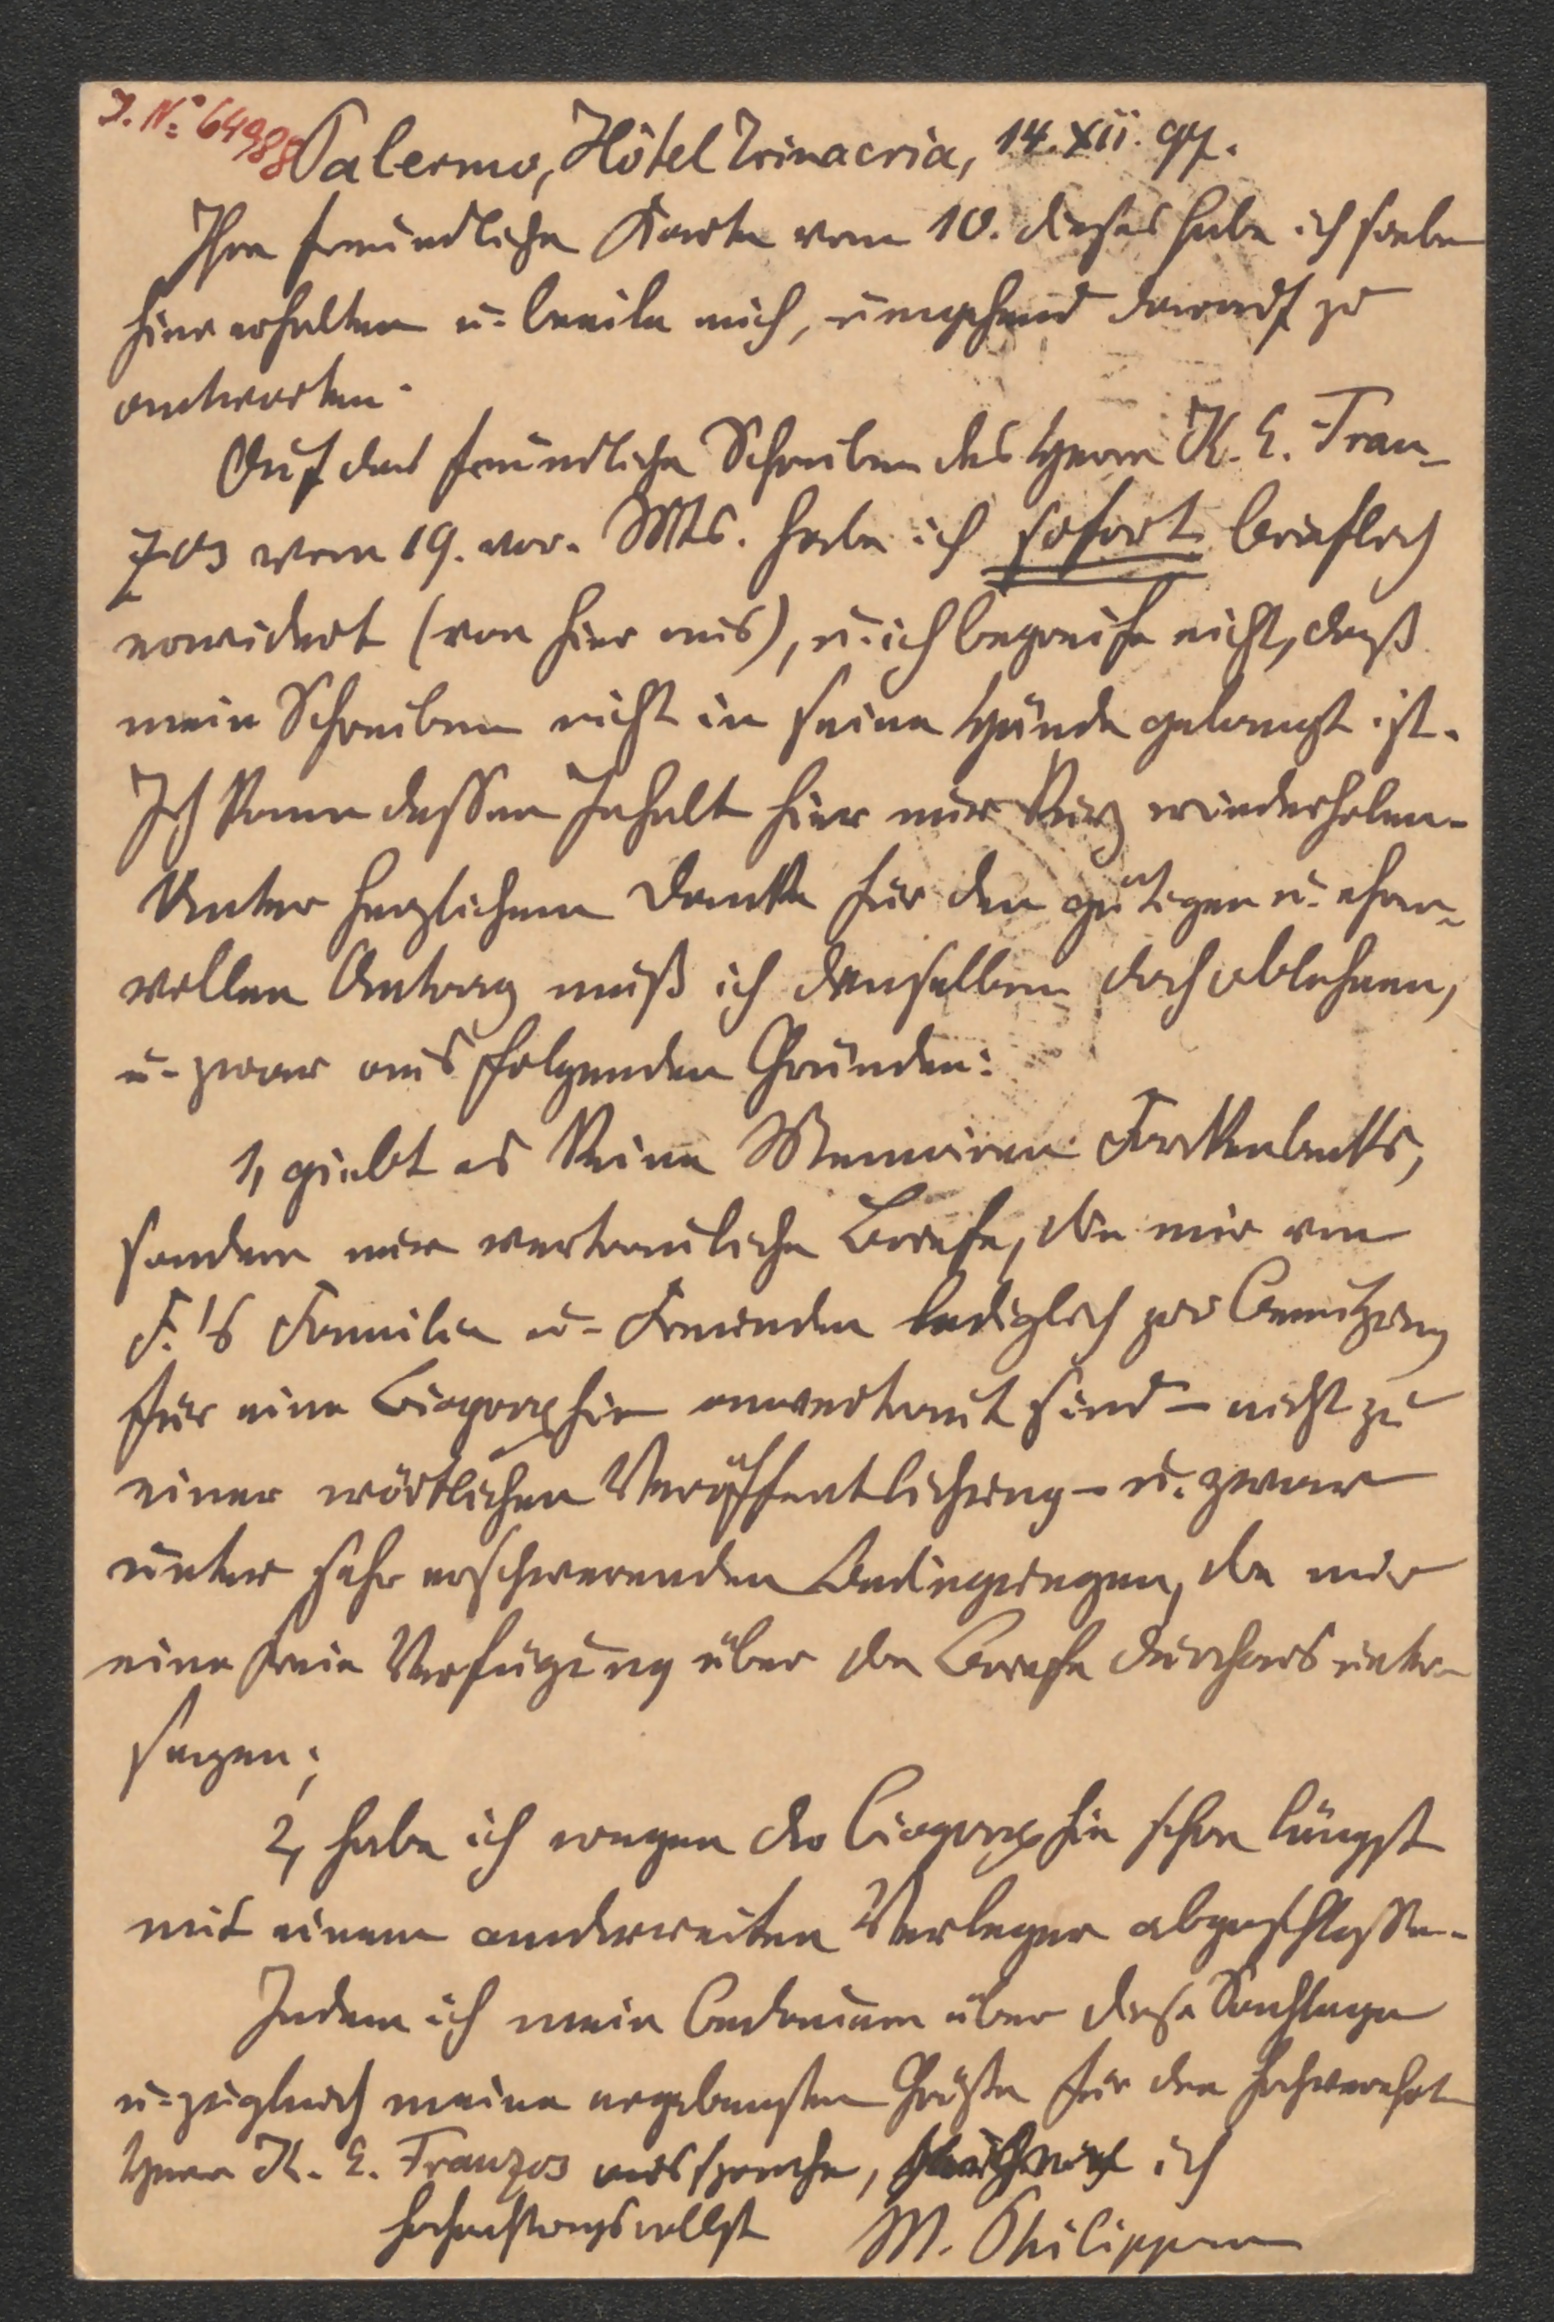 J. No 64988
Palermo, Hôtel Trinacria, 14. XII. 97.
Ihre freundliche Karte vom 10. dieses habe ich soeben
hier erhalten u. beeile mich, umgehend darauf zu
antworten.
Auf das freundliche Schreiben des Herrn K. E. Fran-
zos vom 19. vor. Mts. habe ich sofort brieflich
erwidert (von hier aus), u. ich begreife nicht, daß
mein Schreiben nicht in seine Hände gelangt ist.
Ich kann dessen Inhalt hier nur kurz wiederholen.
Unter herzlichem Danke für den gütigen u. ehren-
vollen Antrag muß ich denselben doch ablehnen,
u. zwar aus folgenden Gründen:
1, giebt es keine Memoiren Forckenbecks,
sondern nur vertrauliche Briefe, die mir von
F.'s Familie u. Freunden lediglich zur Benutzung
für eine Biographie anvertraut sind – nicht zu
einer wörtlichen Veröffentlichung – u. zwar
unter sehr erschwerenden Bedingungen, die mir
eine freie Verfügung über die Briefe durchaus unter-
sagen;
2, habe ich wegen der Biographie schon längst
mit einem anderweiten Verleger abgeschlossen.
Indem ich mein Bedauern über diese Sachlage
u. zugleich meine ergebensten Grüße für den hochverehrten
Herrn K. E. Franzos ausspreche, ich
hochachtungsvollst M. Philippson